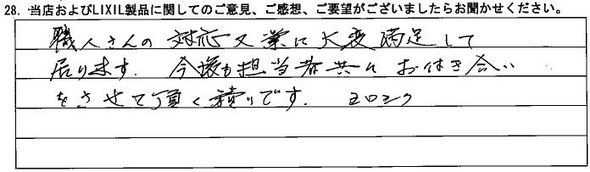 28. 当店およびLIXIL製品に関してのご意見、ご感想、ご要望がございましたらお聞かせください。
職人さんの対応又業に大変満足して
居ります. 今後も担当者共にお付き合い
をさせて頂く積りです.